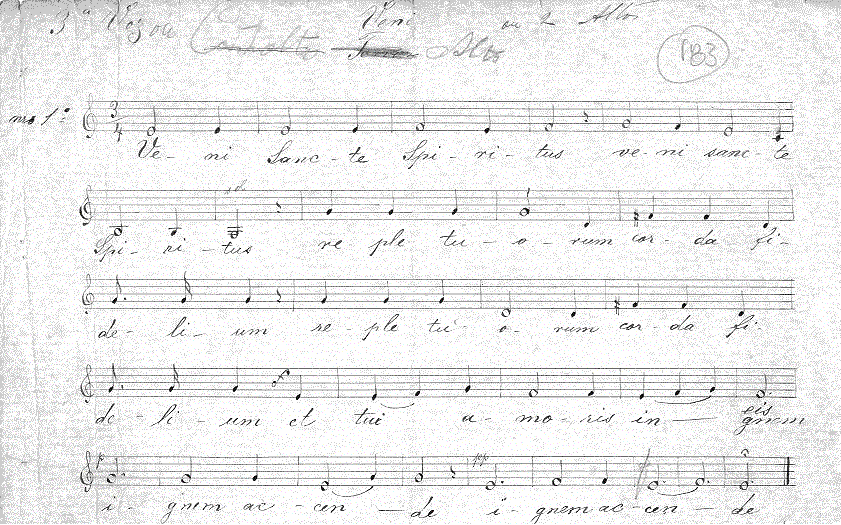 3ª Voz ou Veni ou 2 Altos
Alto 183
nro 1º
Ve- ni Sanc- te Spi- ri- tus ve- ni sanc- te
sol
Spi- ri- tus re ple tu- o- rum cor- da fi-
de- li- um re- ple tu- o- rum cor- da fi-
de- li- um et tui a- mo- ris in eis gnem
p pp
i- gnem ac- cen- de i- gnem ac- cen- de